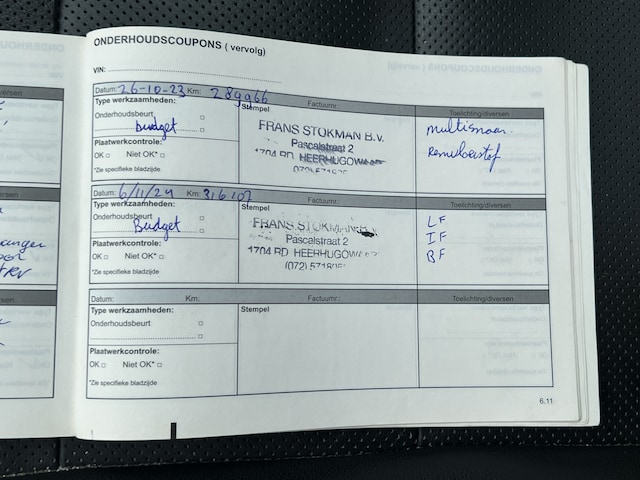 ONDERHOUDSCOUPONS ( vervolg)
VIN:
Datum: 26-10-23 Km: 289966 Factuurnr.: Toelichting/diversen
Type werkzaamheden:
Onderhoudsbeurt
budget
Plaatwerkcontrole:
OK Niet OK*
*Zie specifieke bladzijde
Stempel
FRANS STOKMAN B.V.
Pascalstraat 2
1704 RD HEERHUGOWAARD
Remvloeistof
Datum: 6/11/24 Km: 316107 Factuurnr.: Toelichting/diversen
Type werkzaamheden:
Onderhoudsbeurt
Budget
Plaatwerkcontrole:
OK Niet OK*
*Zie specifieke bladzijde
Stempel
FRANS STOKMAN B.V.
Pascalstraat 2
1704 RD HEERHUGOWAARD
LF
IF
BF
Datum: Km: Factuurnr.: Toelichting/diversen
Type werkzaamheden:
Onderhoudsbeurt
Plaatwerkcontrole:
OK Niet OK*
*Zie specifieke bladzijde
Stempel
6.11